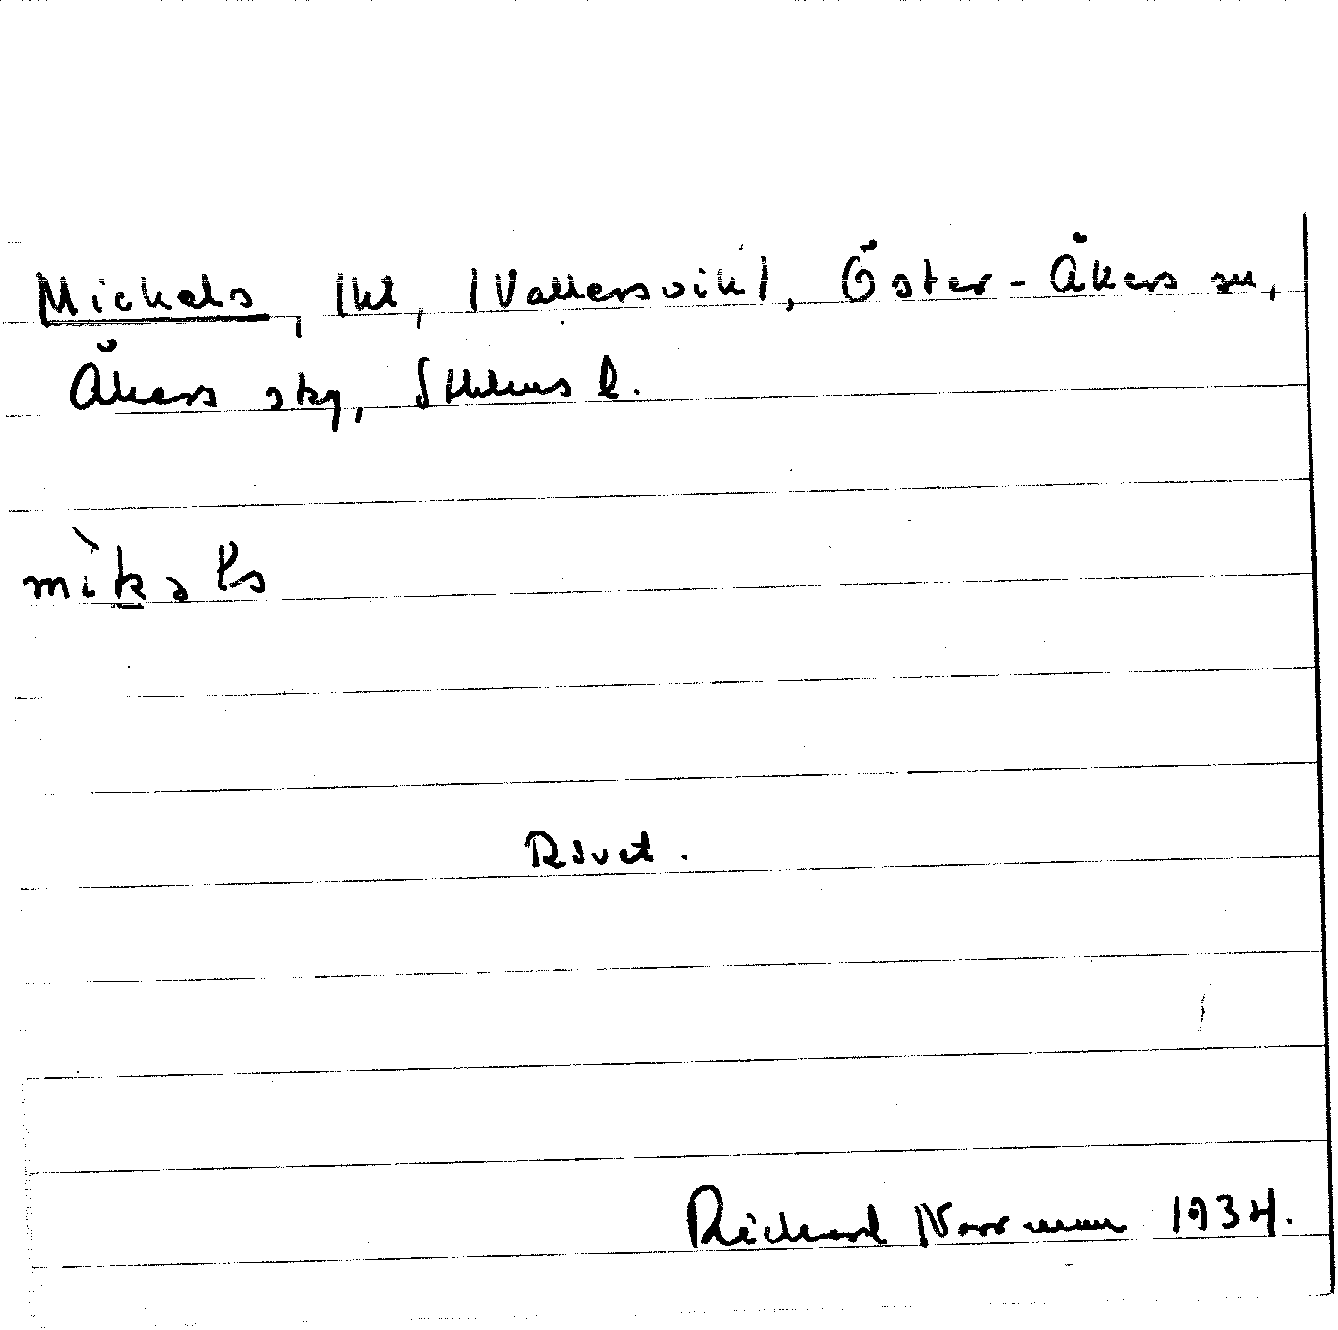 Mickels, lht, (Vallersvik), Öster-Åkers sn,
Åkers skg, Sthlms l.
mìkəls
Rivet.
Richard Norrman 1934.